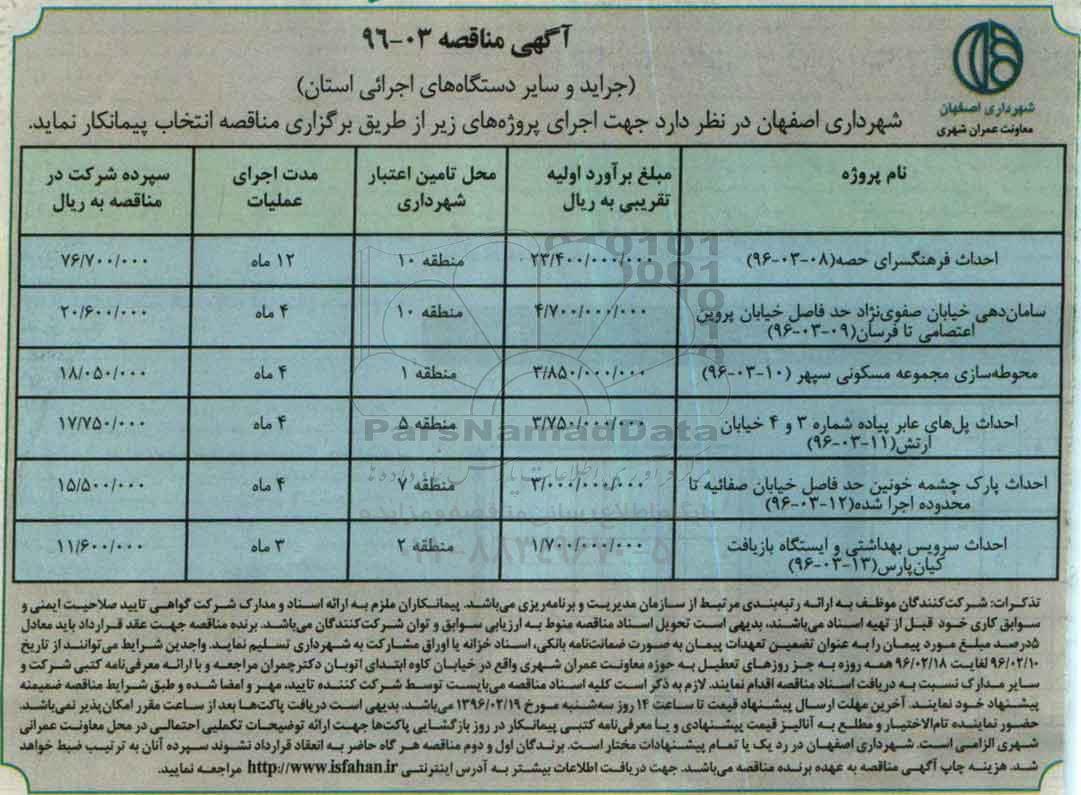 آگهی مناقصه ۰۳-۹۶
(جراید و سایر دستگاه‌های اجرائی استان)
شهرداری اصفهان
معاونت عمران شهری
شهرداری اصفهان در نظر دارد جهت اجرای پروژه‌های زیر از طریق برگزاری مناقصه انتخاب پیمانکار نماید.
نام پروژه	مبلغ برآورد اولیه تقریبی به ریال	محل تامین اعتبار شهرداری	مدت اجرای عملیات	سپرده شرکت در مناقصه به ریال
احداث فرهنگسرای حصه(۰۸-۰۳-۹۶)	۲۳/۴۰۰/۰۰۰/۰۰۰	منطقه ۱۰	۱۲ ماه	۷۶/۷۰۰/۰۰۰
سامان‌دهی خیابان صفوی‌نژاد حد فاصل خیابان پروین اعتصامی تا فرسان(۰۹-۰۳-۹۶)	۴/۷۰۰/۰۰۰/۰۰۰	منطقه ۱۰	۴ ماه	۲۰/۶۰۰/۰۰۰
محوطه‌سازی مجموعه مسکونی سپهر (۱۰-۰۳-۹۶)	۳/۸۵۰/۰۰۰/۰۰۰	منطقه ۱	۴ ماه	۱۸/۰۵۰/۰۰۰
احداث پل‌های عابر پیاده شماره ۳ و ۴ خیابان ارتش(۱۱-۰۳-۹۶)	۳/۷۵۰/۰۰۰/۰۰۰	منطقه ۵	۴ ماه	۱۷/۷۵۰/۰۰۰
احداث پارک چشمه خونین حد فاصل خیابان صفائیه تا محدوده اجرا شده(۱۲-۰۳-۹۶)	۳/۰۰۰/۰۰۰/۰۰۰	منطقه ۷	۴ ماه	۱۵/۵۰۰/۰۰۰
احداث سرویس بهداشتی و ایستگاه بازیافت کیان‌پارس(۱۳-۰۳-۹۶)	۱/۷۰۰/۰۰۰/۰۰۰	منطقه ۲	۳ ماه	۱۱/۶۰۰/۰۰۰
ParsNamadData
تذکرات: شرکت‌کنندگان موظف به ارائه رتبه‌بندی مرتبط از سازمان مدیریت و برنامه‌ریزی می‌باشد. پیمانکاران ملزم به ارائه اسناد و مدارک شرکت گواهی تایید صلاحیت ایمنی و
سوابق کاری خود قبل از تهیه اسناد می‌باشند، بدیهی است تحویل اسناد مناقصه منوط به ارزیابی سوابق و توان شرکت‌کنندگان می‌باشد. برنده مناقصه جهت عقد قرارداد باید معادل
۵درصد مبلغ مورد پیمان را به عنوان تضمین تعهدات پیمان به صورت ضمانت‌نامه بانکی، اسناد خزانه یا اوراق مشارکت به شهرداری تسلیم نماید. واجدین شرایط می‌توانند از تاریخ
۹۶/۰۲/۱۰ لغایت ۹۶/۰۲/۱۸ همه روزه به جز روزهای تعطیل به حوزه معاونت عمران شهری واقع در خیابان کاوه ابتدای اتوبان دکترچمران مراجعه و با ارائه معرفی‌نامه کتبی شرکت و
سایر مدارک نسبت به دریافت اسناد مناقصه اقدام نمایند. لازم به ذکر است کلیه اسناد مناقصه می‌بایست توسط شرکت کننده تایید، مهر و امضا شده و طبق شرایط مناقصه ضمیمنه
پیشنهاد خود نمایند. آخرین مهلت ارسال پیشنهاد قیمت تا ساعت ۱۴ روز سه‌شنبه مورخ ۱۳۹۶/۰۲/۱۹ می‌باشد. بدیهی است دریافت پاکت‌ها بعد از ساعت مقرر امکان‌پذیر نمی‌باشد.
حضور نماینده تام‌الاختیار و مطلع به آنالیز قیمت پیشنهادی و با معرفی‌نامه کتبی پیمانکار در روز بازگشایی پاکت‌ها جهت ارائه توضیحات تکمیلی احتمالی در محل معاونت عمرانی
شهری الزامی است. شهرداری اصفهان در رد یک یا تمام پیشنهادات مختار است. برندگان اول و دوم مناقصه هر گاه حاضر به انعقاد قرارداد نشوند سپرده آنان به ترتیب ضبط خواهد
شد. هزینه چاپ آگهی مناقصه به عهده برنده مناقصه می‌باشد. جهت دریافت اطلاعات بیشتر به آدرس اینترنتی http://www.isfahan.ir مراجعه نمایید.